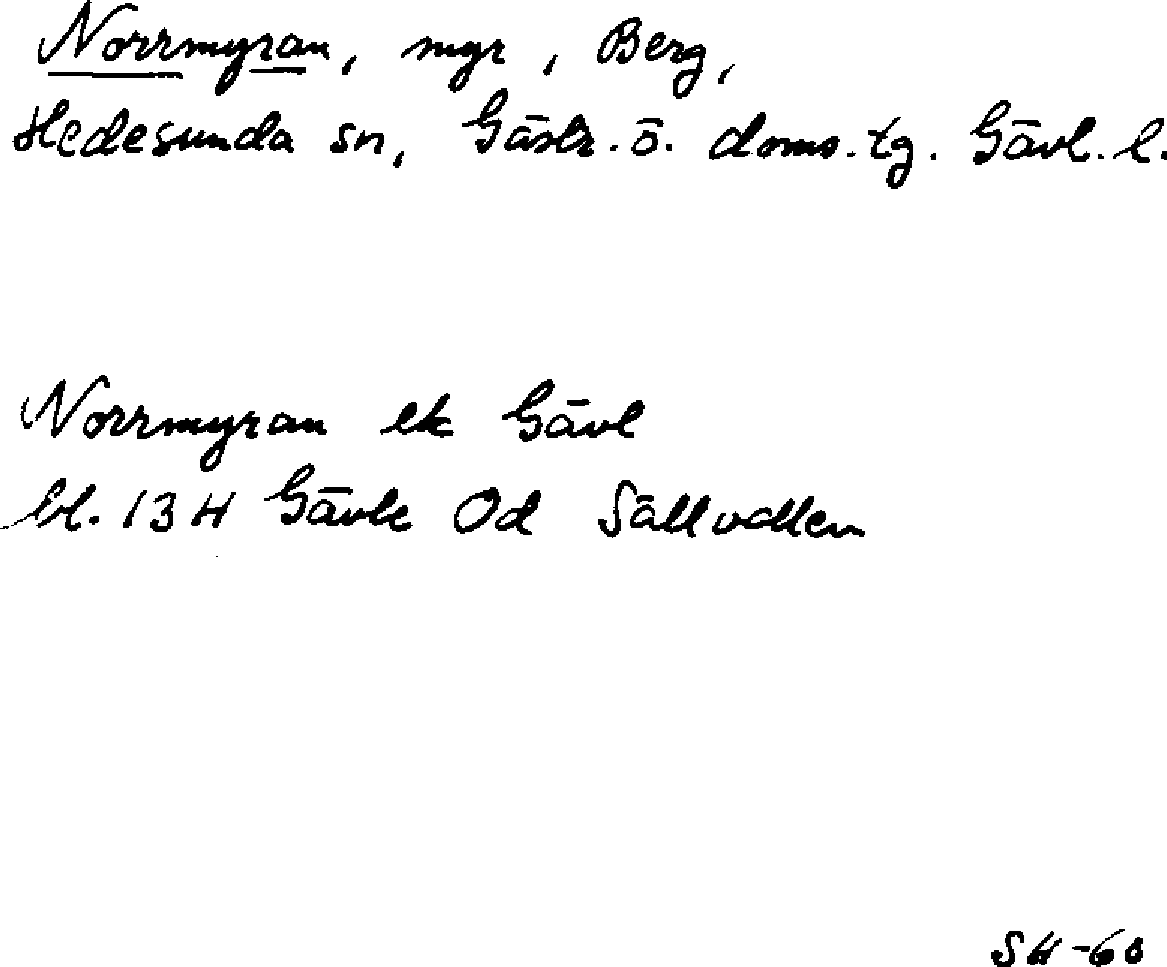 Norrmyran, myr, Berg,
Hedesunda sn, Gästr. ö. doms. tg. Gävl. l.
Norrmyran ek Gävl
bl. 13 H Gävle Od Sällvallen
SH -60